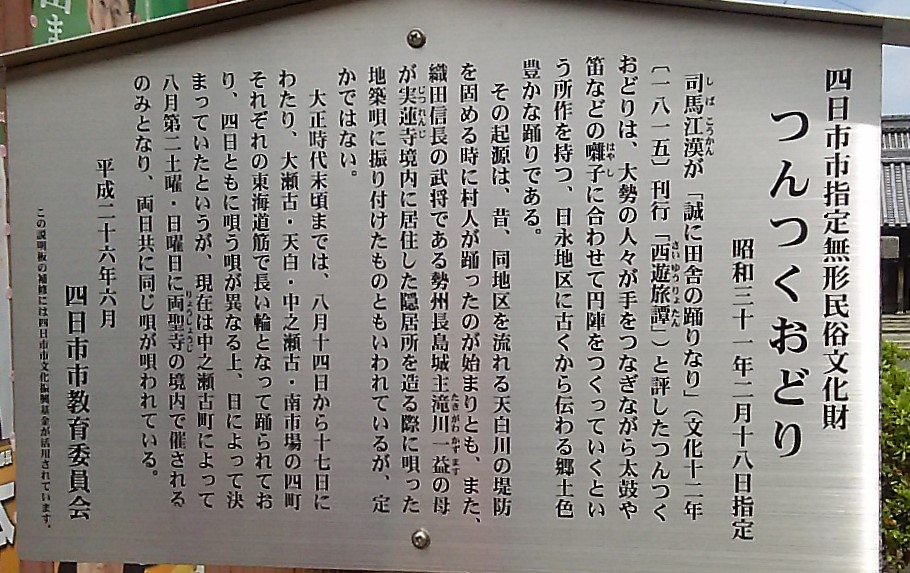 四日市市指定無形民俗文化財
つんつくおどり
昭和三十一年二月十八日指定
司馬江漢が「誠に田舎の踊りなり」（文化十二年
〔一八一五〕刊行「西遊旅譚」）と評したつんつく
おどりは、大勢の人々が手をつなぎながら太鼓や
笛などの囃子に合わせて円陣をつくっていくとい
う所作を持つ、日永地区に古くから伝わる郷土色
豊かな踊りである。
その起源は、昔、同地区を流れる天白川の堤防
を固める時に村人が踊ったのが始まりとも、また、
織田信長の武将である勢州長島城主滝川一益の母
が実蓮寺境内に居住した隠居所を造る際に唄った
地築唄に振り付けたものともいわれているが、定
かではない。
大正時代末頃までは、八月十四日から十七日に
わたり、大瀬古・天白・中之瀬古・南市場の四町
それぞれの東海道筋で長い輪となって踊られてお
り、四日ともに唄う唄が異なる上、日によって決
まっていたというが、現在は中之瀬古町によって
八月第二土曜・日曜日に両聖寺の境内で催される
のみとなり、両日共に同じ唄が唄われている。
平成二十六年六月
四日市市教育委員会
この説明板の補修には四日市市文化振興基金が活用されています。